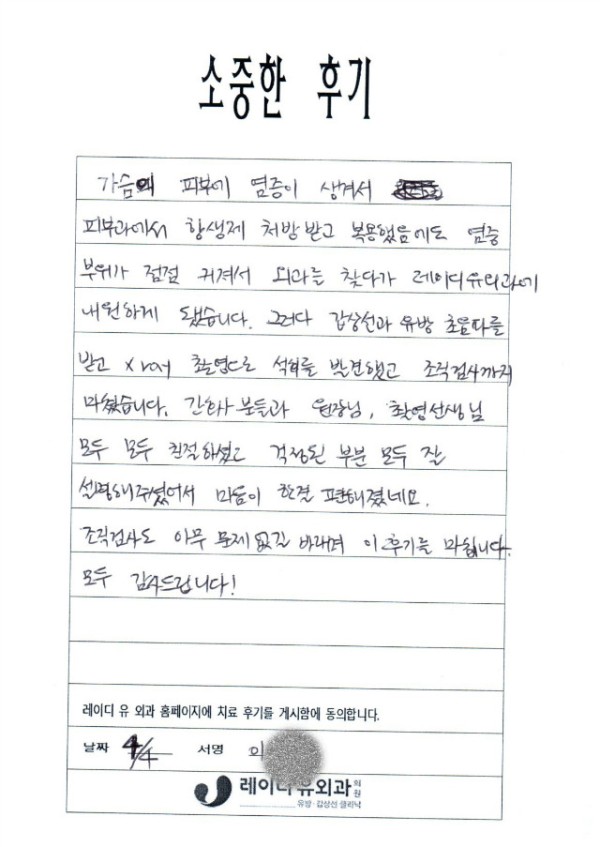 소중한 후기
가슴에 피부에 염증이 생겨서
피부과에서 항생제 처방받고 복용했음에도 염증
부위가 점점 커져서 외과는 찾다가 레이디유외과에
내원하게 됐습니다. 그러다 갑상선과 유방 초음파를
받고 X ray 촬영으로 석회를 발견했고 조직검사까지
마쳤습니다. 간호사 분들과 원장님, 촬영선생님
모두 모두 친절하셨고 걱정된 부분 모두 잘
설명해주셨어서 마음이 한결 편해졌네요.
조직검사도 아무 문제 없길 바래며 이 후기를 마칩니다.
모두 감사드립니다!
레이디 유 외과 홈페이지에 치료 후기를 게시함에 동의합니다.
날짜 4/4 서명 이
레이디유외과의원
유방·갑상선 클리닉